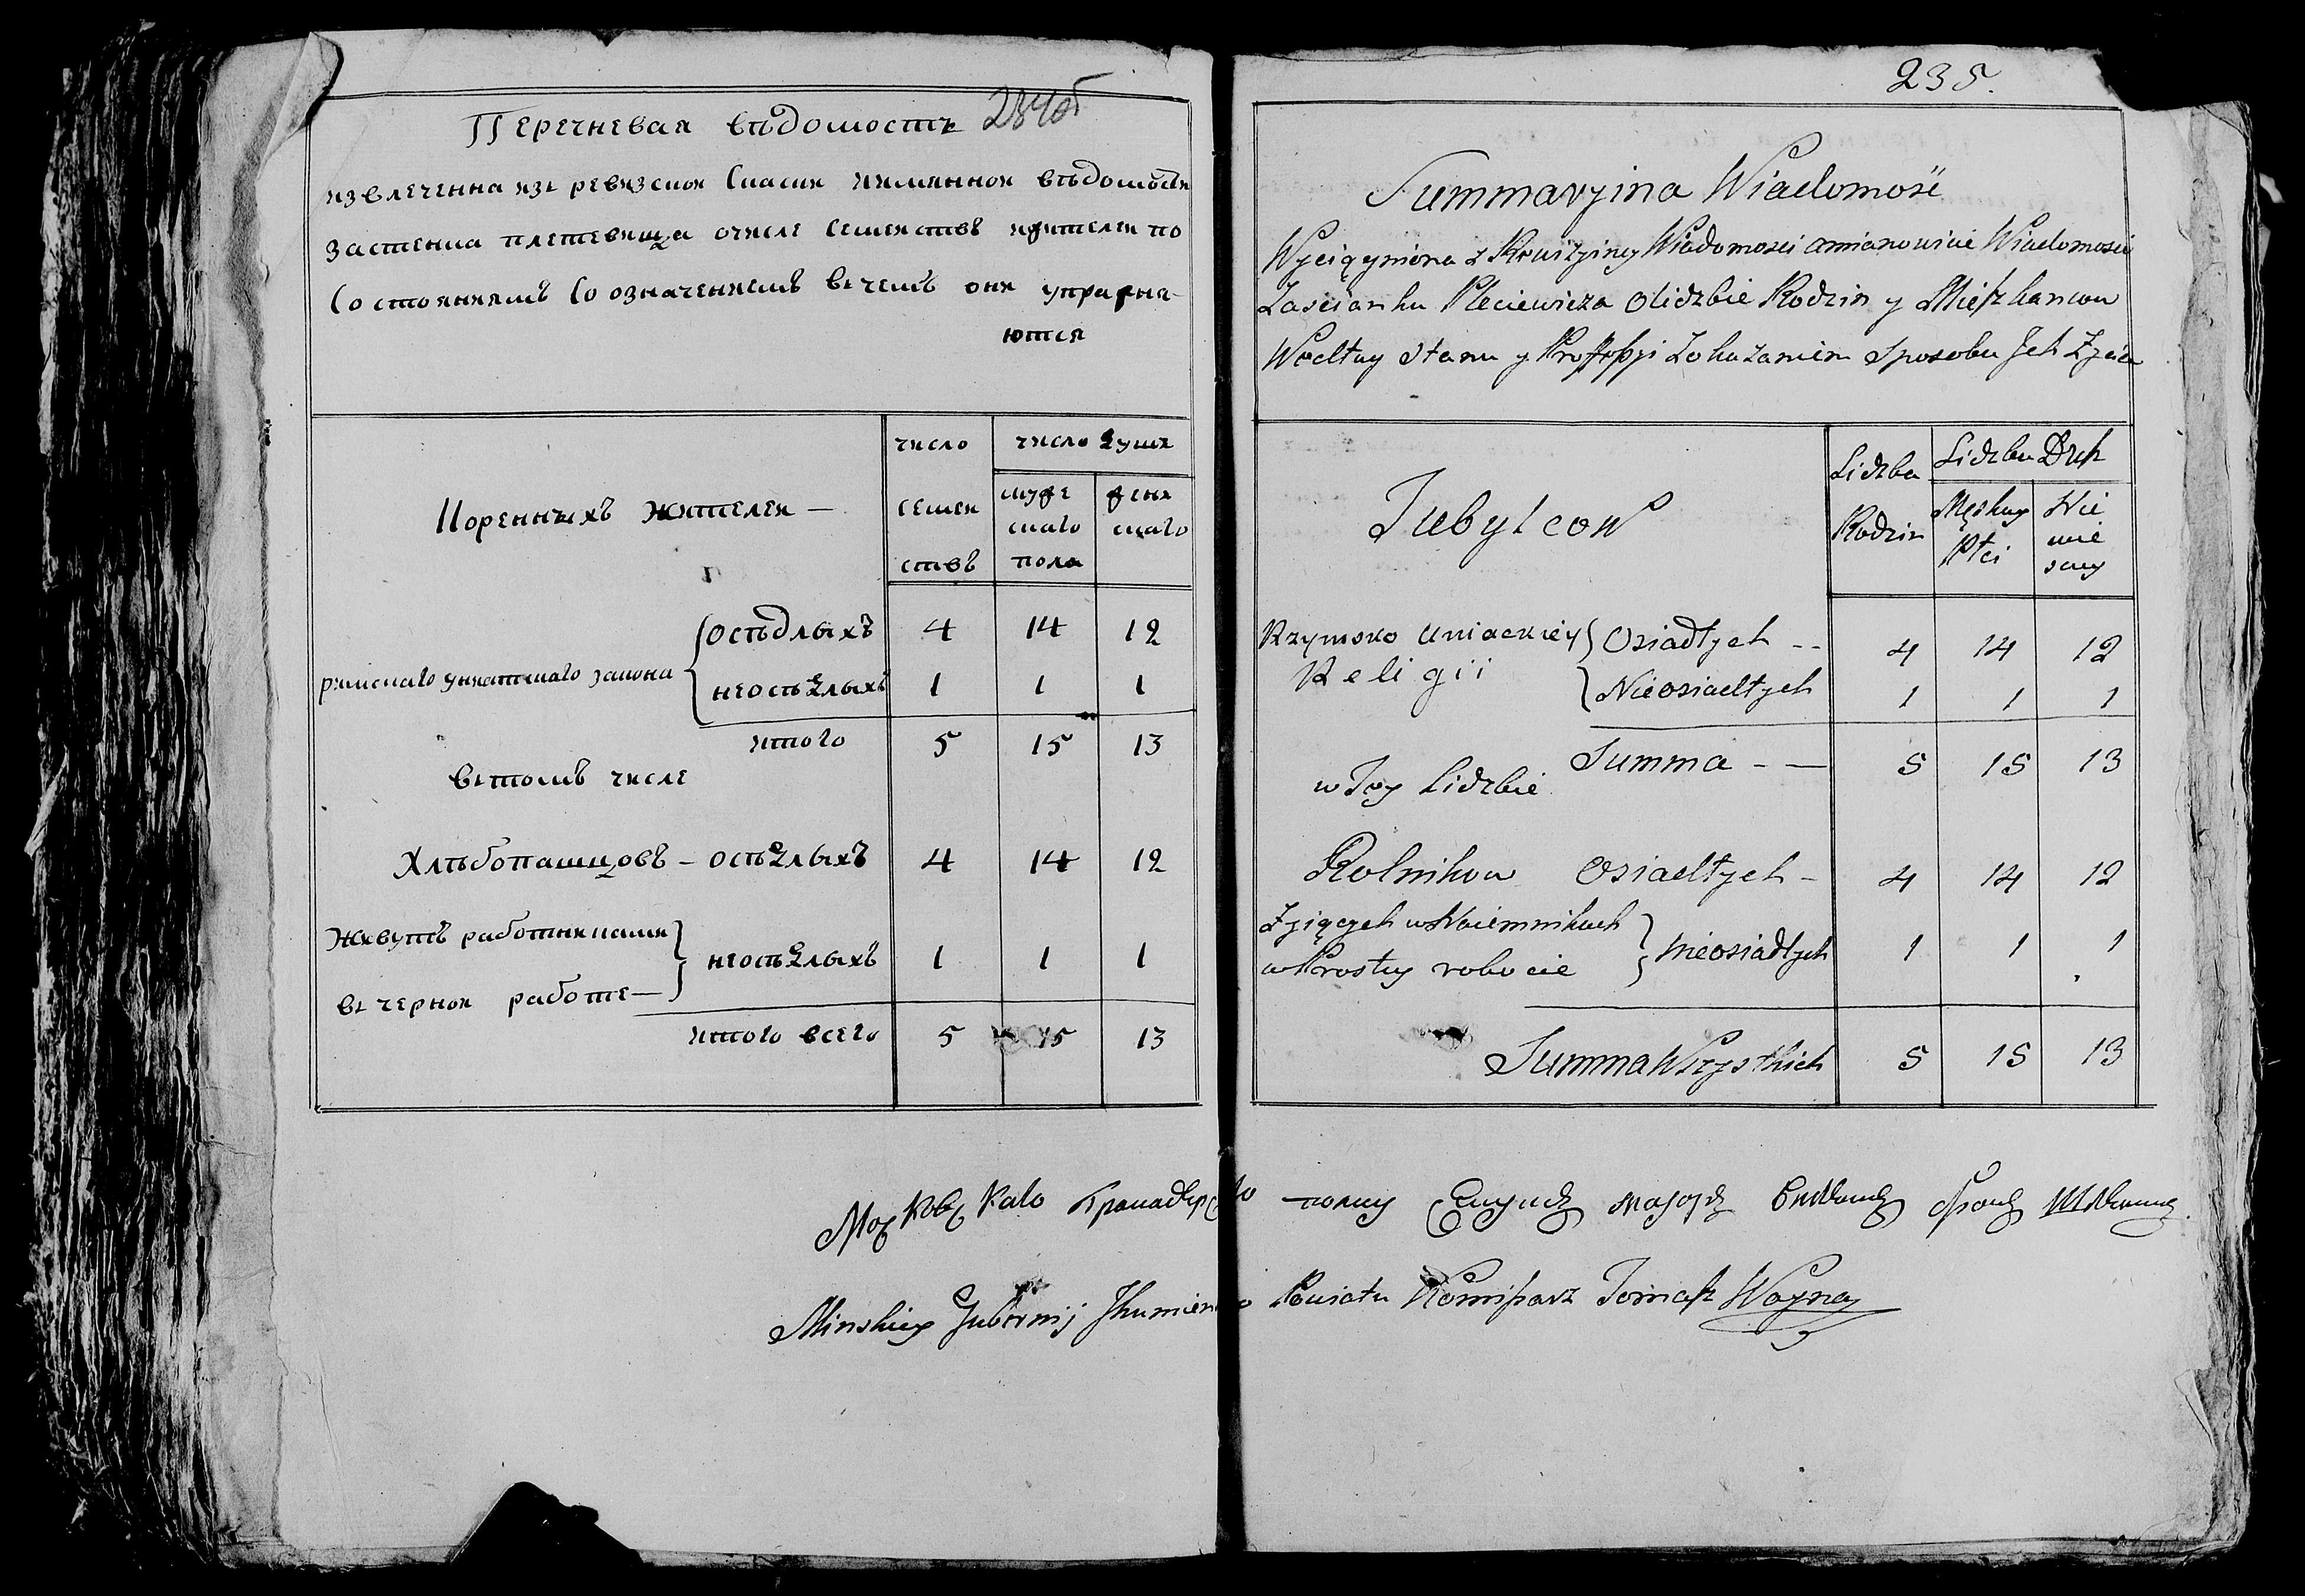 Перечневая вѣдомость 234об
извлеченна изъ ревизскои Скаски иименнои вѣдомости
Застенка плетевища очисле Семеиствъ ижителеи по
Состояниямъ Со означениемъ вчемъ они упражня-
ются
Коренныхъ жителеи —
число семеиствъ
число душъ
мужескаго пола
женскаго
римскаго униатскаго закона
осѣдлыхъ 4 14 12
неосѣдлыхъ 1 1 1
итого 5 15 13
вътомъ числе
Хлѣбопашцовъ - осѣдлыхъ 4 14 12
Живутъ работниками
въ чернои работе —
неосѣдлыхъ 1 1 1
итого всего 5 15 13
235.
Summaryina Wiadomość
Wyciągniona z Rewizyiney Wiadomosci amianowicie Wiadomosci
Zascianku Pleciewicza Olidzbie Rodzin y Mieszkancow
Wedłuy Stanu y Proffessyi Zokazaniem Sposobu Jch Zycia
Tubylcow
Lidzba Rodzin
Lidzba Dusz
Męskiey Płci
Nie wie sciey
Rzymsko Uniackiey
Religii
Osiadłych -- 4 14 12
Nieosiadłych 1 1 1
Summa -— 5 15 13
w Tey Lidzbie
Rolnikow Osiadłych - 4 14 12
Zyiących w Naiemnikach
w Prostey robocie
Nieosiadłych 1 1 1
Summa Wszystkich 5 15 13
Московскаго Гранадерскаго полку Секундъ маіоръ
Minskiey Gubernij Jhumien Powiatu Komissarz Tomasz Woyna